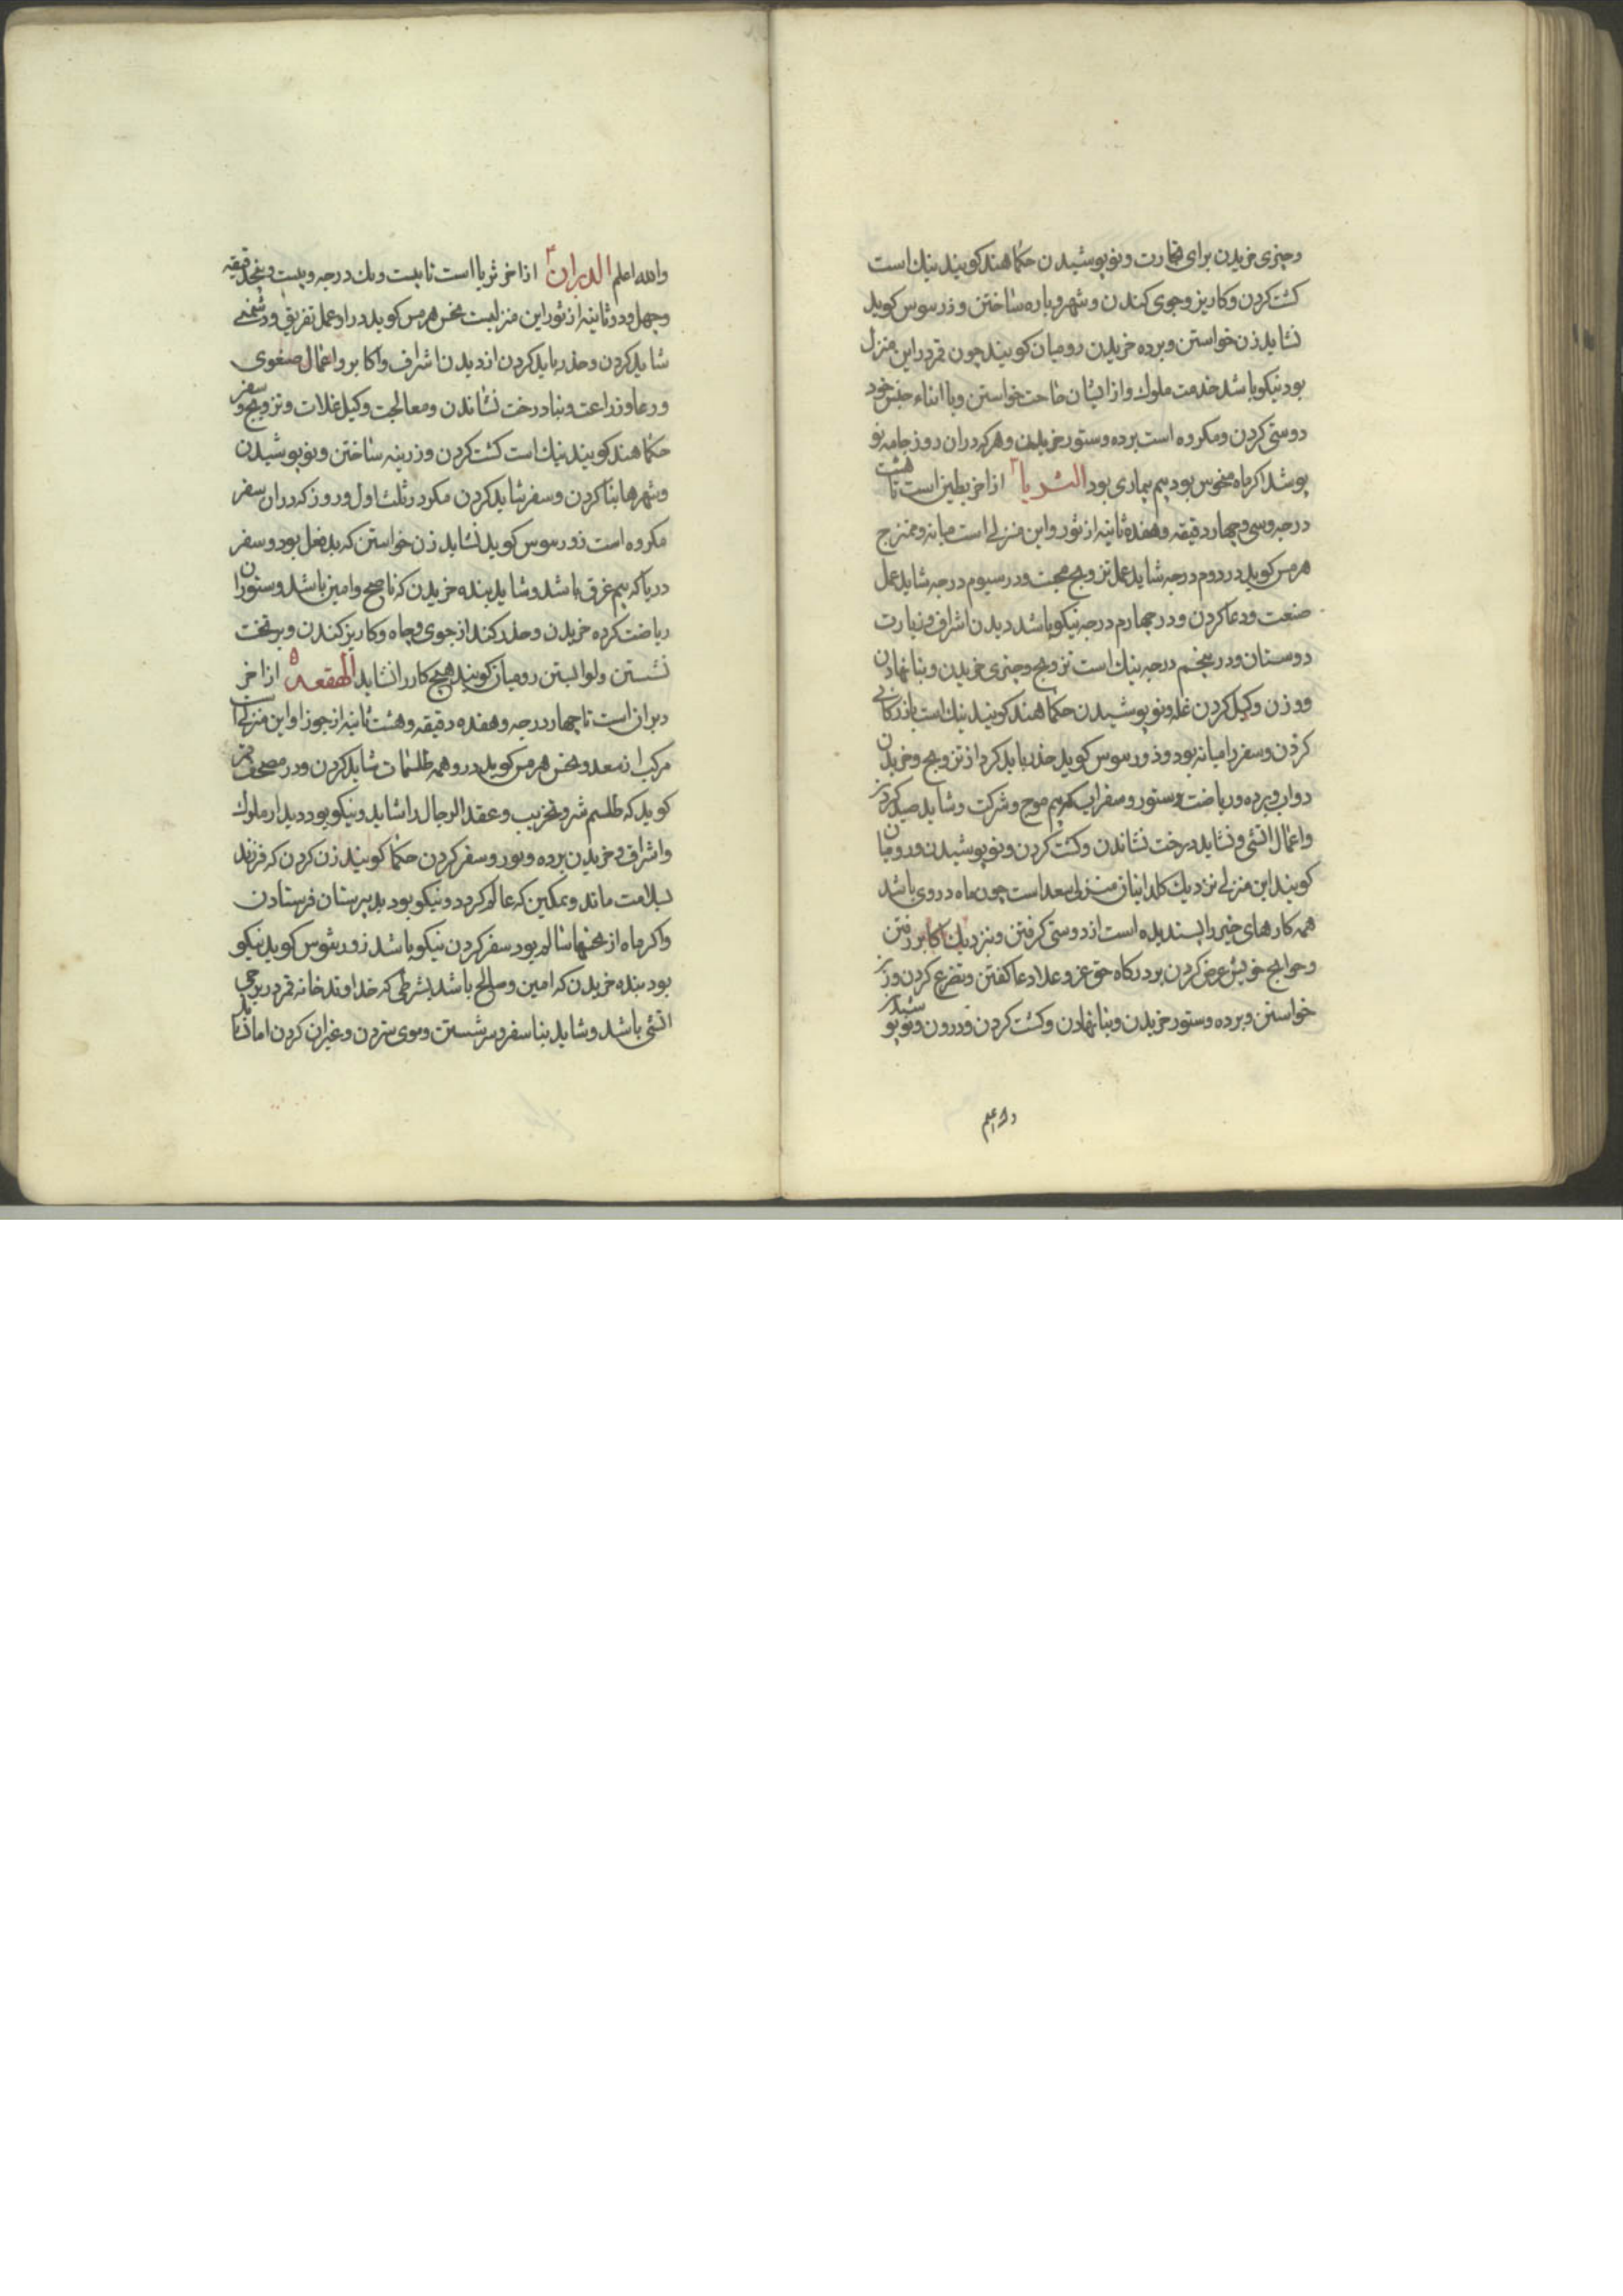 وچیزی خریدن برای تجارت ونو پوشیدن حکما هند کویند نیك است
کشت کردن وکاریز وجوی کندن وشهر وباره ساختن وذرسوس کوید
نشاید زن خواستن وبرده خریدن رومیان کویند چون قمر دراین منزل
بود نیکو باشد خدمت ملوك وازایشان حاجت خواستن وبا ابناء جنس خود
دوستی کردن ومکروه است برده وستور خریدن وهرکه دران روز جامه نو
پوشد اکر ماه منحوس بود بیم بیماری بود الثریا ۳ ازاخر بطین است تا هشت
درجه وسی وچهار دقیقه وهفده ثانیه از ثور واین منزلی است میانه وممتزج
هرمس کوید در دوم درجه شاید عمل تزویج محبت ودر سیوم درجه شاید عمل
صنعت ودعا کردن ودر چهارم درجه نیکو باشد دیدن اشراف وزیارت
دوستان ودر پنجم درجه نیك است تزویج وچیزی خریدن وبنا نهادن
ووزن وکیل کردن غله ونو پوشیدن حکما هند کویند نیك است بازرکانی
کردن وسفر را میانه بود وذورسوس کوید حذر باید کرد از تزویج وخریدن
دواب وبرده وریاضت وستور وسفر اب که بیم موج وشرکت وشاید صید کردن
واعمال اتشی ونشاید درخت نشاندن وکشت کردن ونو پوشیدن ورومیان
کویند این منزلی نزدیك کلدانیان منزلی سعد است چون ماه در وی باشد
همه کارهای خیر را پسندیده است از دوستی کرفتن وبنزدیك اکابر رفتن
وحوایج خویش عرض کردن بردرکاه حق عز وعلا ودعا کفتن وتضرع کردن وزن
خواستن وبرده وستور خریدن وبنا نهادن وکشت کردن ودرون ونو پوشیدن
والله اعلم
والله اعلم الدبران ۴ ازاخر ثریا است تا بیست ویك درجه وبیست وپنج دقیقه
وچهل ودو ثانیه از ثور این منزلیست نحس هرمس کوید در او عمل تفریق ودشمنی
شاید کردن وحذر باید کردن از دیدن اشراف واکابر واعمال صنعوی
ودعا وزراعت وبنا درخت نشاندن ومعالجت وکیل غلات وتزویج وسفر
حکما هند کویند نیك است کشت کردن وزرینه ساختن ونو پوشیدن
وشهرها بنا کردن وسفر شاید کردن مکر در ثلث اول روز که دران سفر
مکروه است ذورسوس کوید نشاید زن خواستن که بدفعل بود وسفر
دریا که بیم غرق باشد وشاید بنده خریدن که ناصح وامین باشد وستوران
ریاضت کرده خریدن وحذر کند از جوی وچاه وکاریز کندن وبر تخت
نشستن ولوا بستن رومیان کویند هیچ کار را نشاید الهقعه ۵ ازاخر
دبران است تا چهار درجه وهفده دقیقه وهشت ثانیه از جوزا واین منزلی است
مرکب از سعد ونحس هرمس کوید در و همه طلسمات شاید کردن ودر مصحف قمر
کوید که طلسم شر وتخریب وعقد الرجال را شاید ونیکو بود دیدار ملوك
واشراف وخریدن برده وستور وسفر کردن حکما کویند زن کردن که فرزند
بسلامت ماند وممکین که عالم کردد ونیکو بود بدبیرستان فرستادن
واکر ماه از نحسها سالم بود سفر کردن نیکو باشد ذورسوس کوید نیکو
بود بنده خریدن که امین وصالح باشد بشرطی که خداوند خانه قمر در برجی
اتشی باشد وشاید بنا سفر وسر شستن وموی ستردن وغیران کردن اما نشاید